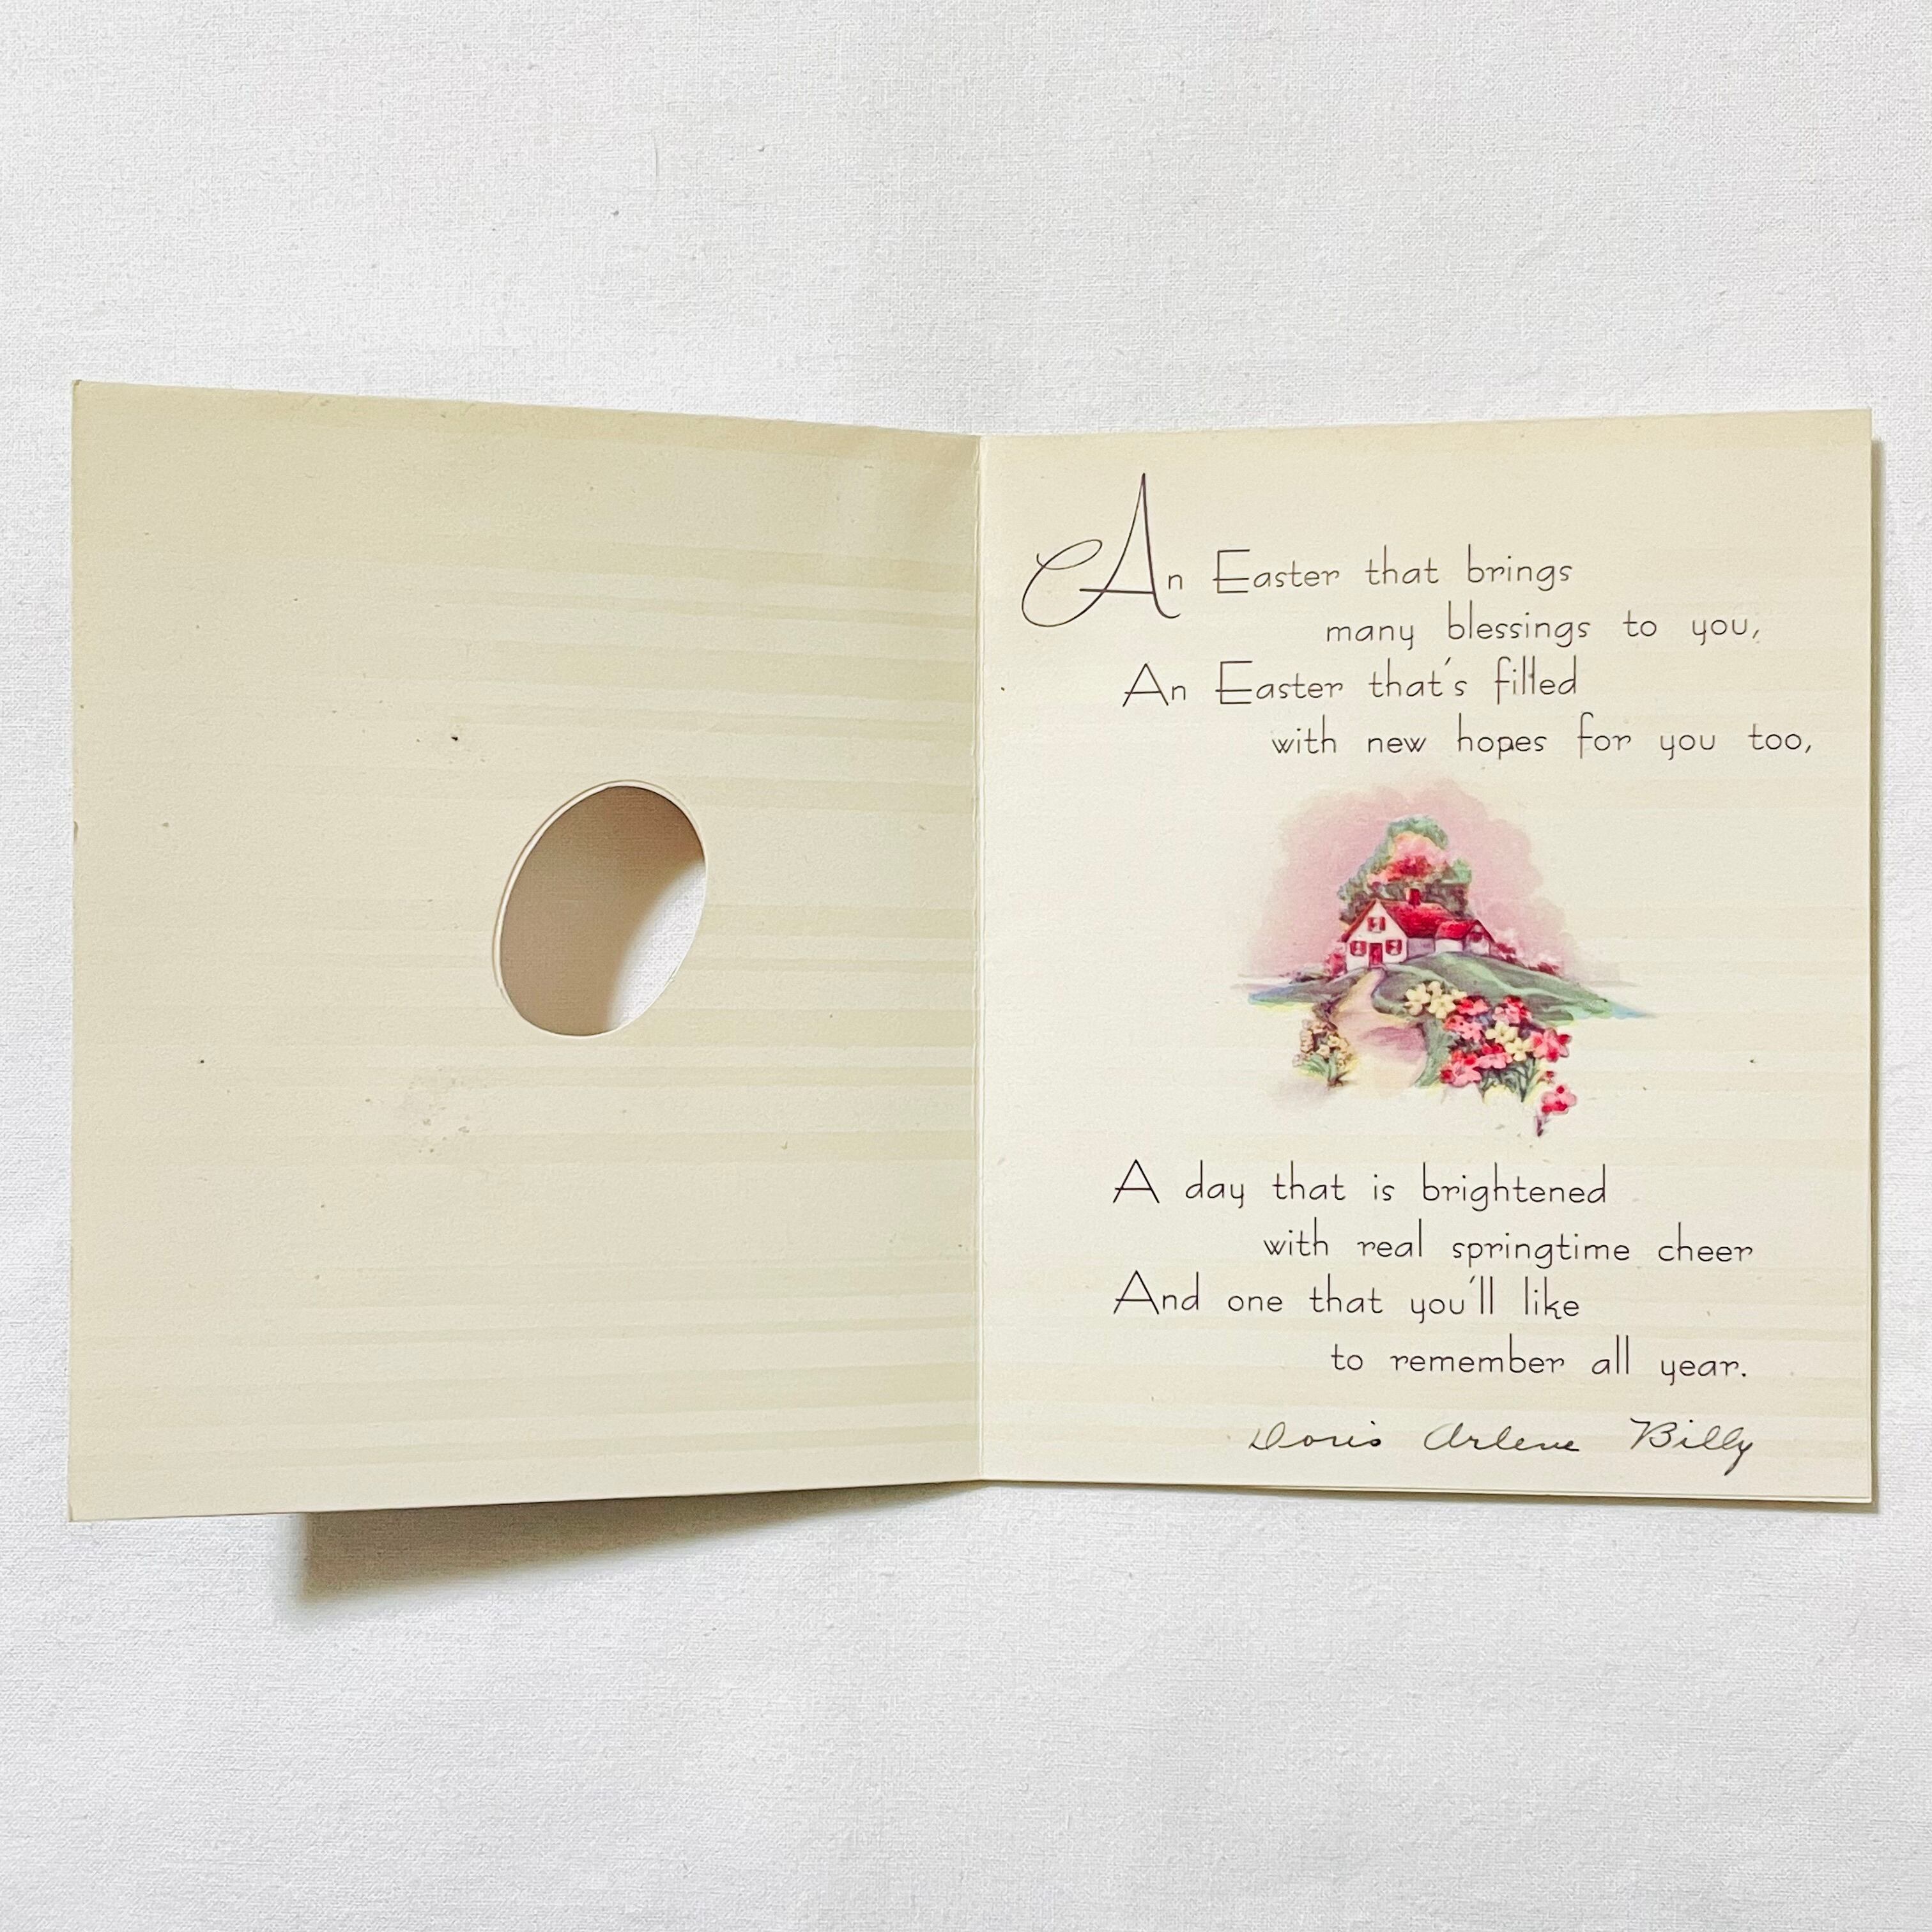 An Easter that brings
many blessings to you,
An Easter that's filled
with new hopes for you too,
A day that is brightened
with real springtime cheer
And one that you'll like
to remember all year.
Doris Arlene Billy